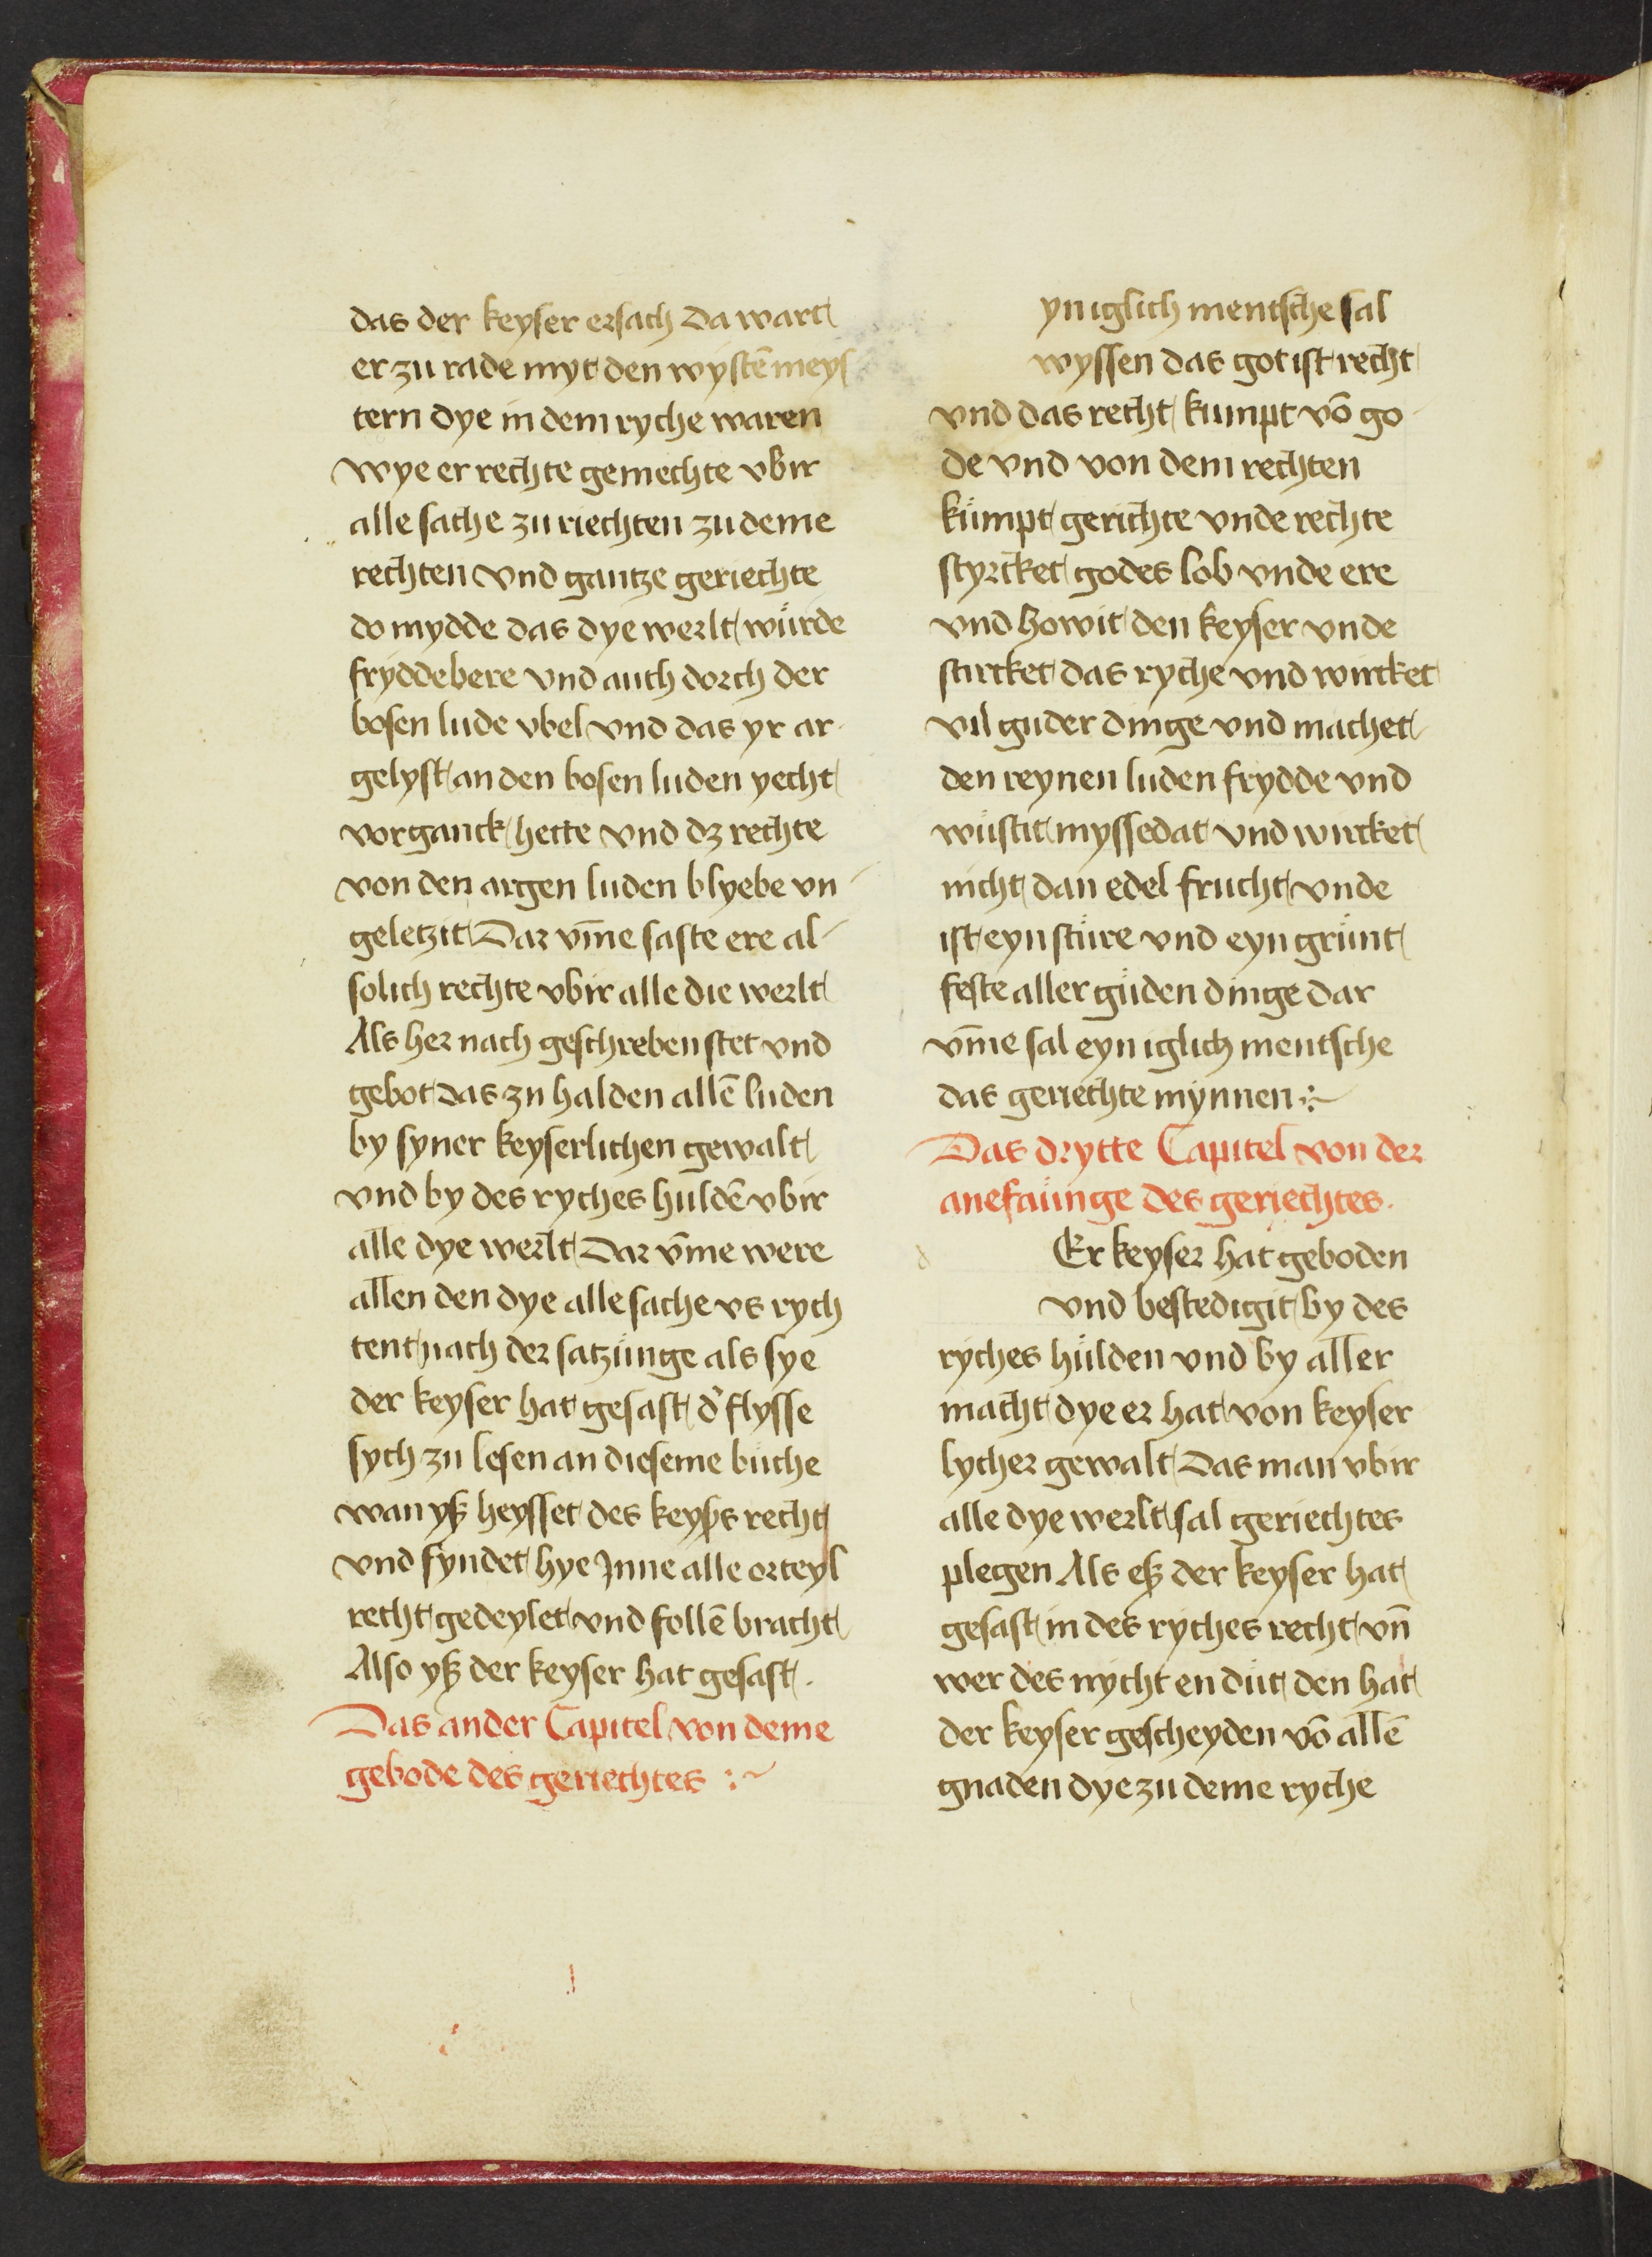 das der keyser ersach Da wart
er zu rade myt den wystē meys
tern dye in dem ryche waren
wye er rechte gemechte vbir
alle sache zu riechten zu deme
rechten vnd gantze geriechte
do mydde das dye werlt würde
fryddebere vnd auch dorch der
bosen lude vbel vnd das yr ar-
gelyst an den bosen luden yecht
vorganck hette vnd dz rechte
von den argen luden blyebe vn-
geletzit Dar vm̄e saste ere al-
solich rechte vbir alle die werlt
Als her nach geschreben stet vnd
gebot das zu halden allē luden
by syner keyserlichen gewalt
vnd by des ryches huldē vbir
alle dye werlt Dar vm̄e were
allen den dye alle sache vs rych
tent nach der satzünge als sye
der keyser hat gesast d' flysse
sych zu lesen an dieseme büche
wan yß heysset des keyßs recht
vnd fyndet hye Jnne alle orteyl
recht gedeylet vnd follē bracht
Also yß der keyser hat gesast.
Das ander Capitel von deme
gebode des geriechtes :~
yn iglich mentsche sal
wyssen das got ist recht
vnd das recht kumpt vō go-
de vnd von dem rechten
kümpt gerichte vnde rechte
styrcket godes lob vnde ere
vnd howit den keyser vnde
stircket das ryche vnd wircket
vil guder dinge vnd machet
den reynen luden frydde vnd
wüstit myssedat vnd wircket
nicht dan edel frucht vnde
ist eyn stüre vnd eyn grünt
feste aller güden dinge dar
vm̄e sal eyn iglich mentsche
das geriechte mynnen :~
Das drytte Capitel von der
anefaünge des geriechtes.
d Er keyser hat geboden
vnd bestedigit by des
ryches hülden vnd by aller
macht dye er hat von keyser
lycher gewalt Das man vbir
alle dye werlt sal geriechtes
plegen Als eß der keyser hat
gesast in des ryches recht vn̄
wer des nycht en düt den hat
der keyser gescheyden vō allē
gnaden dye zu deme ryche